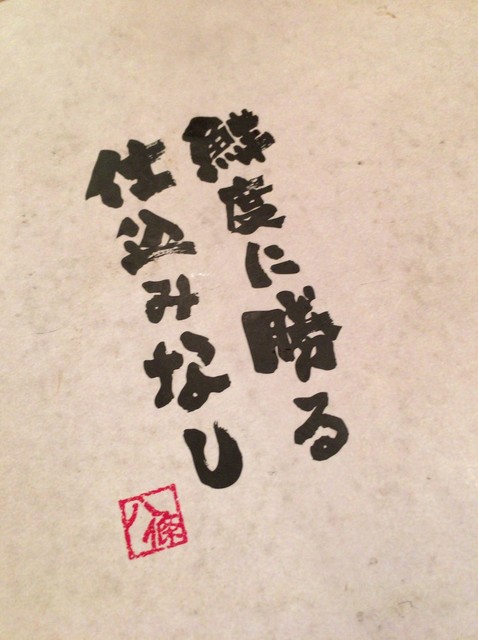 鮮度に勝る
仕込みなし
八條